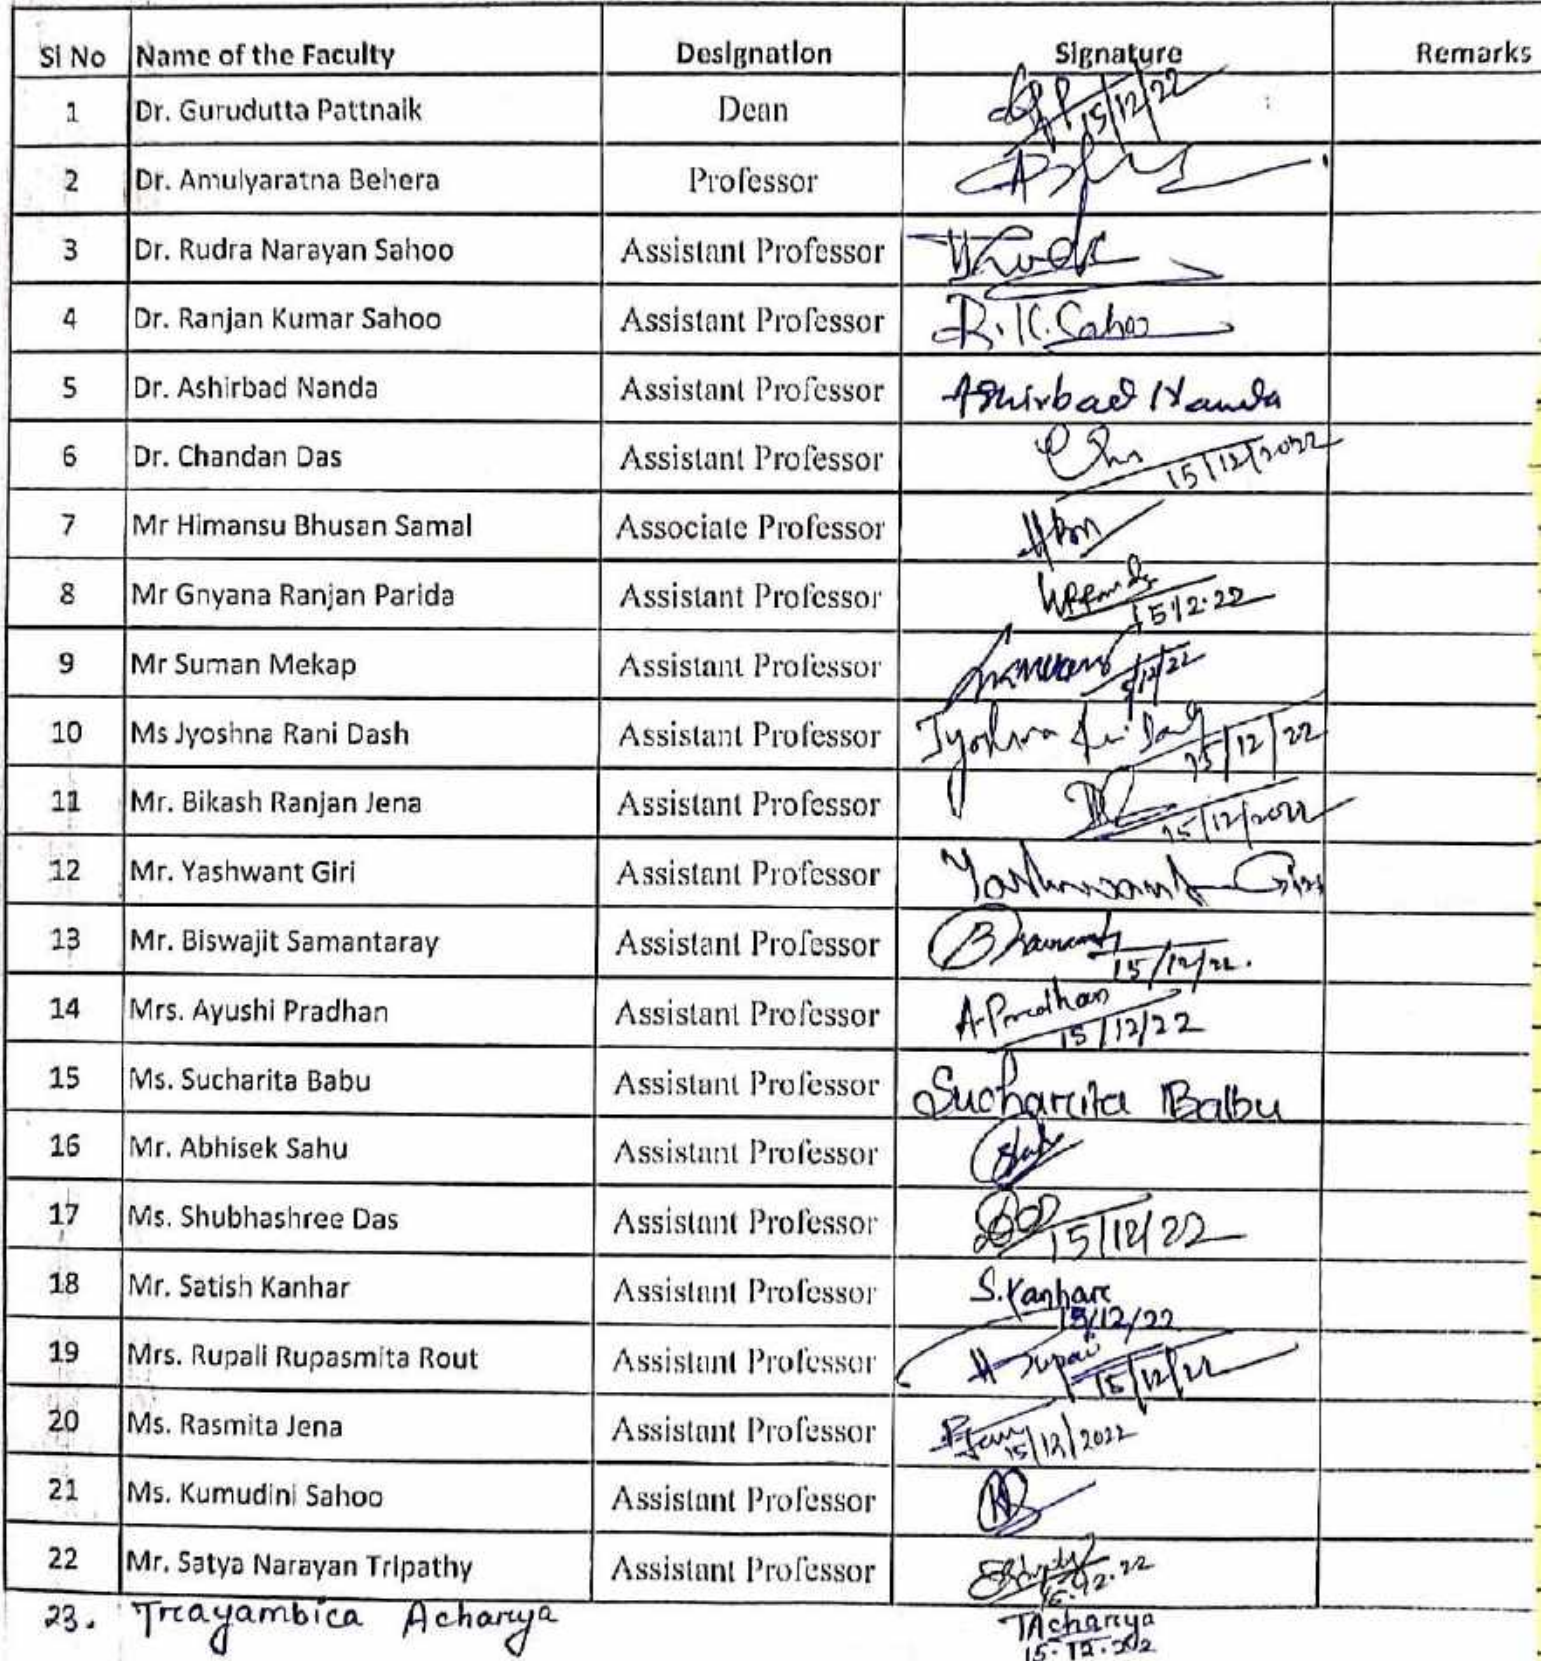 Sl No Name of the Faculty Designation Signature Remarks
1 Dr. Gurudutta Pattnaik Dean 15/12/22
2 Dr. Amulyaratna Behera Professor
3 Dr. Rudra Narayan Sahoo Assistant Professor
4 Dr. Ranjan Kumar Sahoo Assistant Professor R.K. Sahoo
5 Dr. Ashirbad Nanda Assistant Professor Ashirbad Nanda
6 Dr. Chandan Das Assistant Professor 15/12/2022
7 Mr Himansu Bhusan Samal Associate Professor
8 Mr Gnyana Ranjan Parida Assistant Professor 15.12.22
9 Mr Suman Mekap Assistant Professor
10 Ms Jyoshna Rani Dash Assistant Professor Jyoshna 15/12/22
11 Mr. Bikash Ranjan Jena Assistant Professor 15/12/2022
12 Mr. Yashwant Giri Assistant Professor Yashwant Giri
13 Mr. Biswajit Samantaray Assistant Professor 15/12/22.
14 Mrs. Ayushi Pradhan Assistant Professor A. Pradhan 15/12/22
15 Ms. Sucharita Babu Assistant Professor Sucharita Balbu
16 Mr. Abhisek Sahu Assistant Professor
17 Ms. Shubhashree Das Assistant Professor 15/12/22
18 Mr. Satish Kanhar Assistant Professor S. Kanhar 15/12/22
19 Mrs. Rupali Rupasmita Rout Assistant Professor 15/12/22
20 Ms. Rasmita Jena Assistant Professor 15/12/2022
21 Ms. Kumudini Sahoo Assistant Professor
22 Mr. Satya Narayan Tripathy Assistant Professor
23. Trayambica Acharya TAcharya